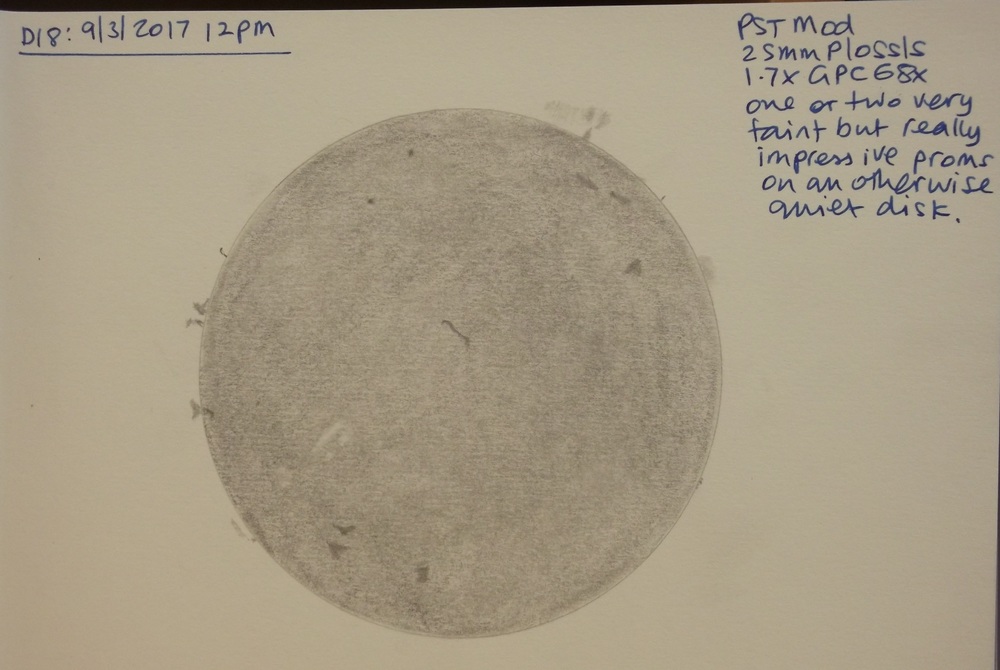 D18: 9/3/2017 12pm
PST Mod
25mm Plossls
1.7x GPC 68x
one or two very
faint but really
impressive proms
on an otherwise
quiet disk.